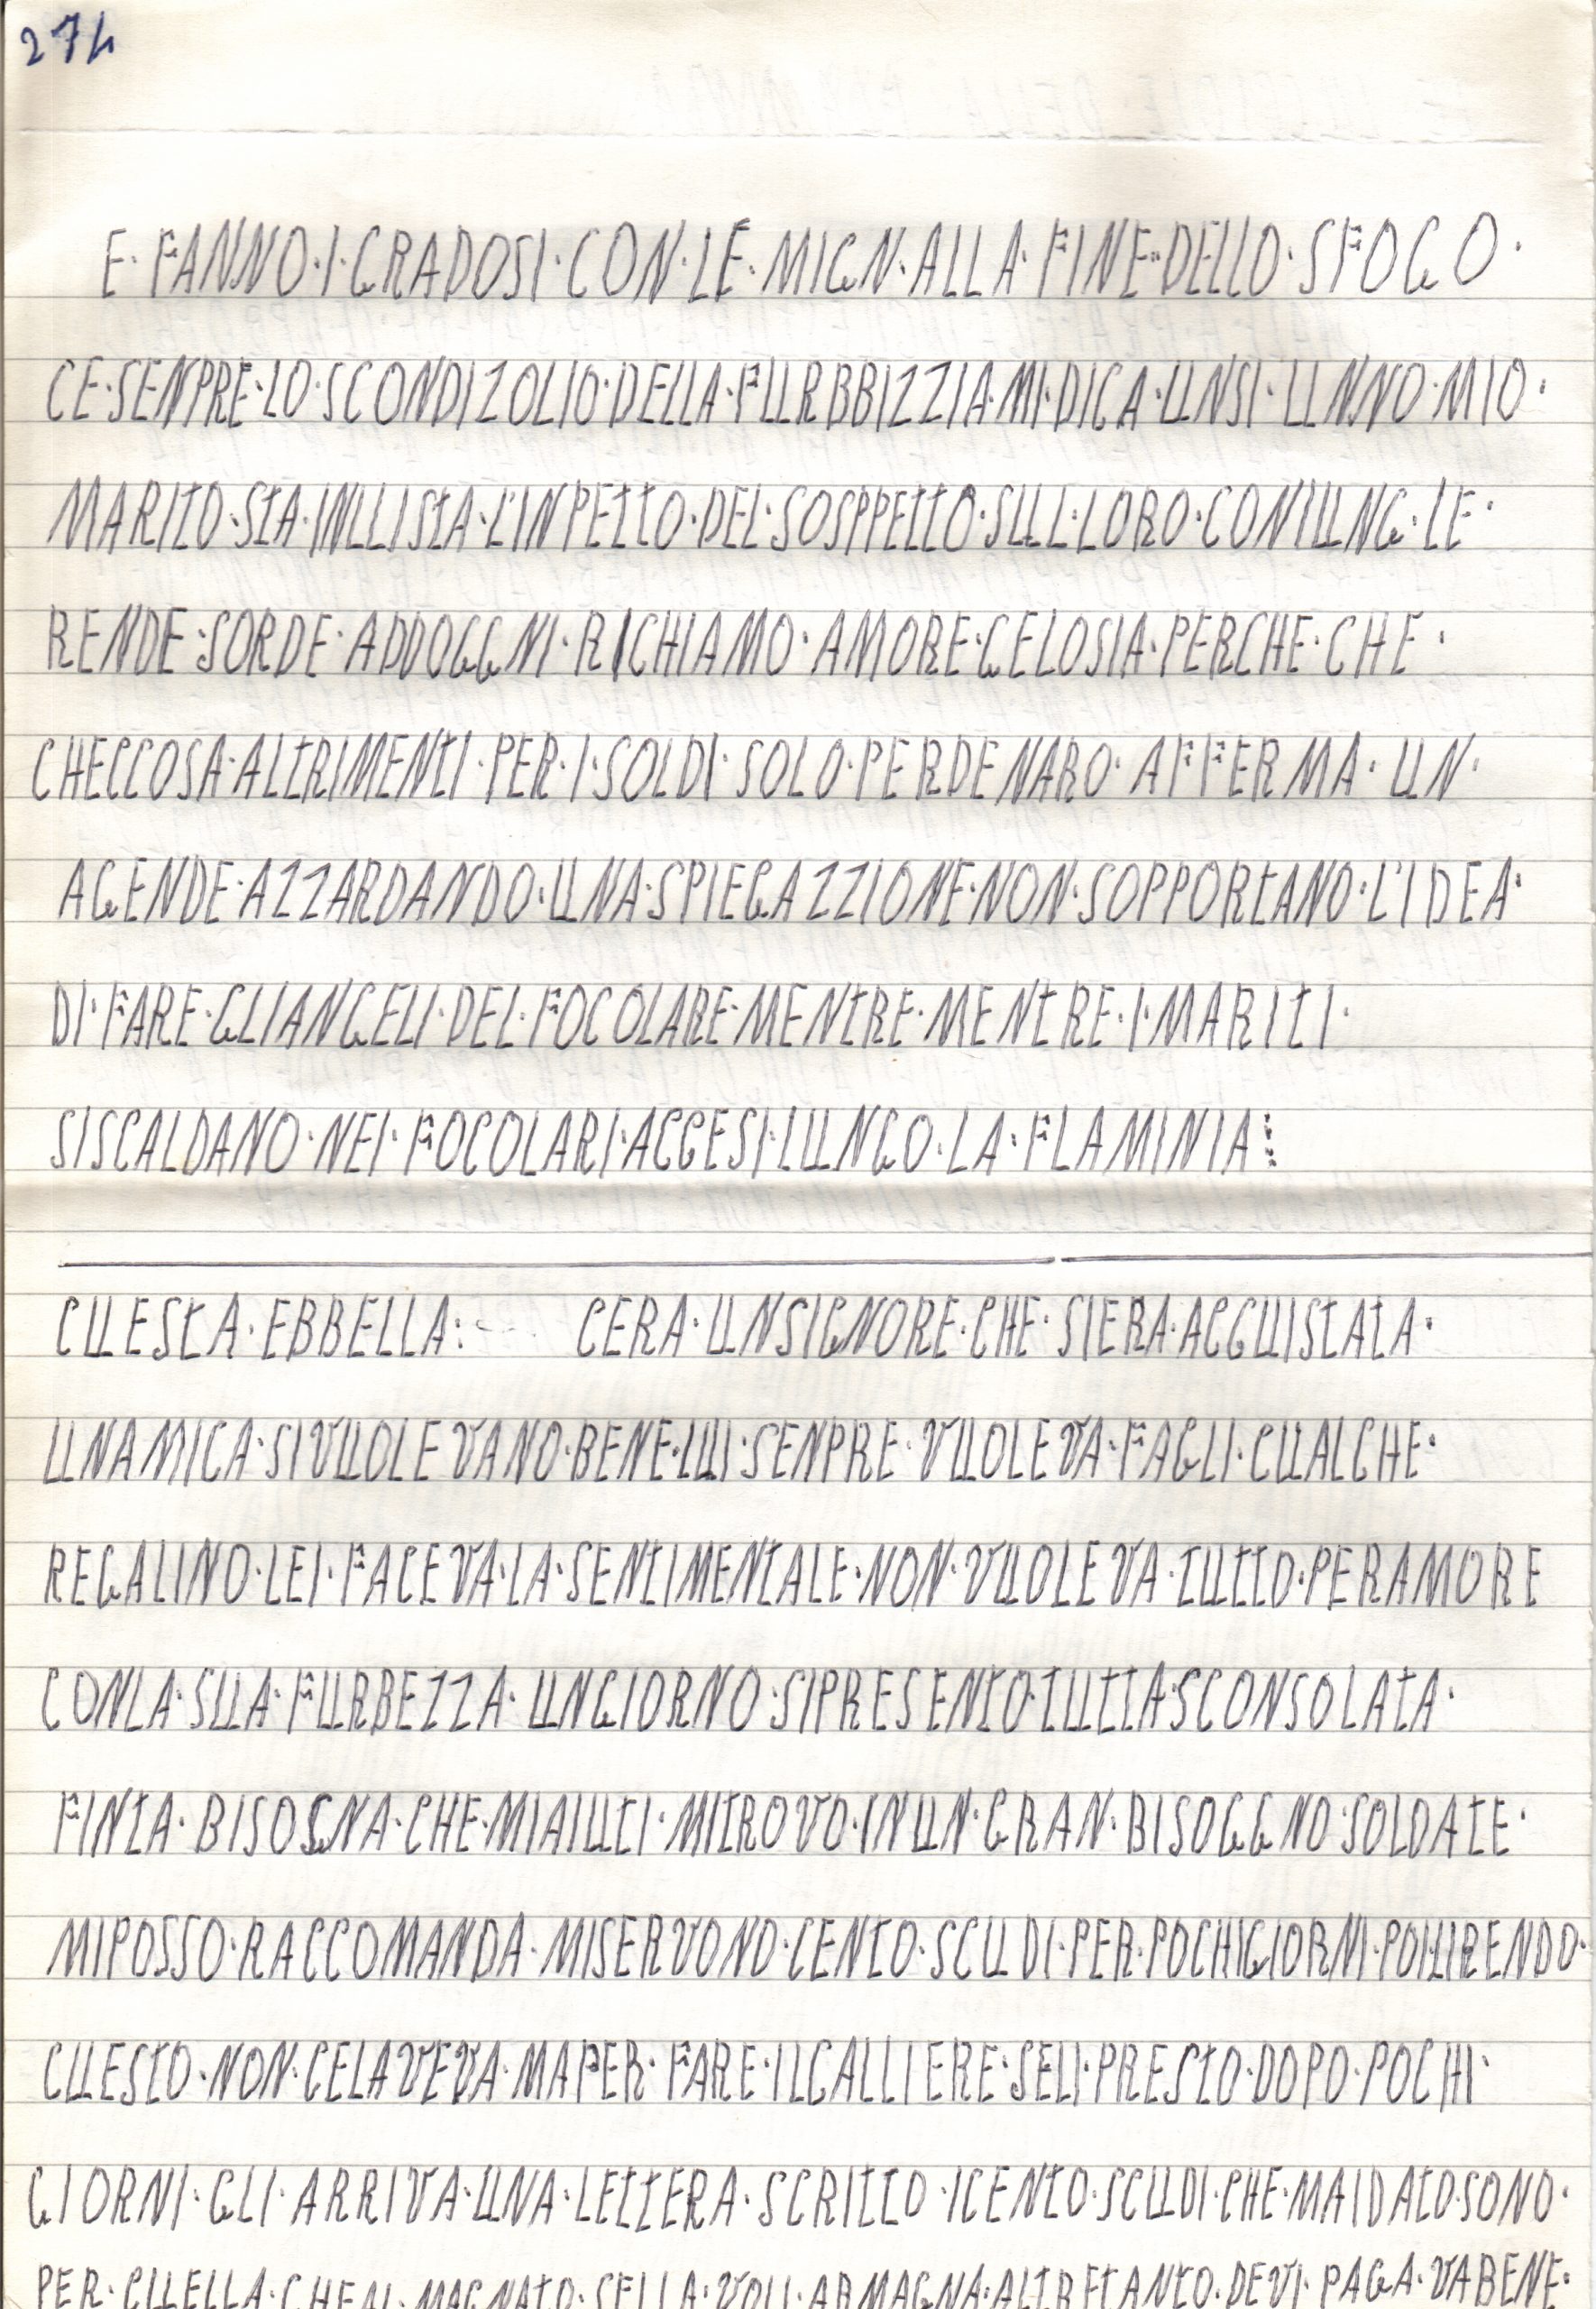 274
E·FANNO·I·GRADOSI·CON·LE·MIGN·ALLA·FINE··DELLO·SFOGO·
CE·SENPRE·LO·SCONDIZOLIO·DELLA·FURBBIZZIA·MI·DICA·UNSI·UNNO·MIO·
MARITO·STA·INLLISTA·L'INPETTO·DEL·SOSPPETTO·SUL·LORO·CONIUNG·LE·
RENDE·SORDE·ADDOGGNI·RICHIAMO·AMORE·GELOSIA·PERCHE·CHE·
CHECCOSA·ALTRIMENTI·PER·I·SOLDI·SOLO·PERDENARO·AFFERMA·UN·
AGENDE·AZZARDANDO·UNA·SPIEGAZZIONE·NON·SOPPORTANO·L'IDEA·
DI·FARE·GLIANGELI·DEL·FOCOLARE·MENTRE·MENTRE·I·MARITI·
SISCALDANO·NEI·FOCOLARI·ACCESI·LUNGO·LA·FLAMINIA⁞
CUESTA·EBBELLA:-... CERA·UNSIGNORE·CHE·SIERA·ACCUISTATA·
UNAMICA·SIVUOLEVANO·BENE·LUI·SENPRE·VUOLEVA·FAGLI·CUALCHE·
REGALINO·LEI·FACEVA·LA·SENTIMENTALE·NON·VUOLEVA·TUTTO·PERAMORE
CONLA·SUA·FURBEZZA·UNGIORNO·SIPRESENTO·TUTTA·SCONSOLATA·
FINTA·BISOGNA·CHE·MIAIUTI·MITROVO·INUN·GRAN·BISOGGNO·SOLDATE·
MIPOSSO·RACCOMANDA·MISERVONO·CENTO·SCUDI·PER·POCHIGIORNI·POILIRENDO·
CUESTO·NON·CELAVEVA·MAPER·FARE·ILCALLIERE·SELI·PRESTO·DOPO·POCHI·
GIORNI·GLI·ARRIVA·UNA·LETTERA·SCRITTO·ICENTO·SCUDI·CHE·MAIDATO·SONO·
PER·CUELLA·MAGNATO·SELLA·VOLI·ARMAGNA·ALTRETANTO·DEVI·PAGA·VABENE·